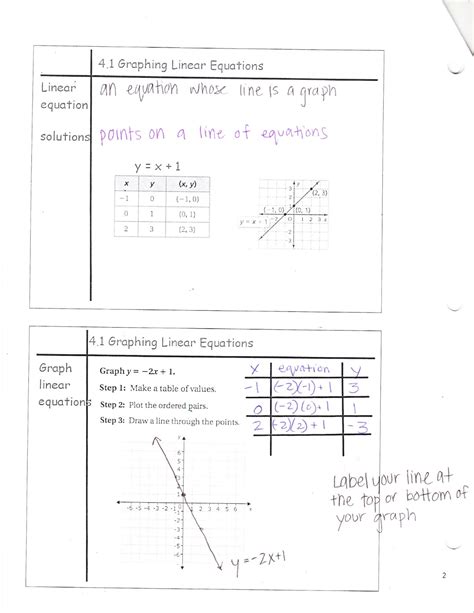 4.1 Graphing Linear Equations
Linear equation
an equation whose line is a graph
solutions
points on a line of equations
y = x + 1
x y (x, y)
−1 0 (−1, 0)
0 1 (0, 1)
2 3 (2, 3)
(2, 3)
(−1, 0) (0, 1)
4.1 Graphing Linear Equations
Graph linear equations
Graph y = −2x + 1.
Step 1: Make a table of values.
Step 2: Plot the ordered pairs.
Step 3: Draw a line through the points.
x equation y
-1 (-2)(-1)+1 3
0 (-2)(0)+1 1
2 (-2)(2)+1 -3
Label your line at
the top or bottom of
your graph
y
-6 -5 -4 -3 -2 1 2 3 4 5 6 x
y=-2x+1
2